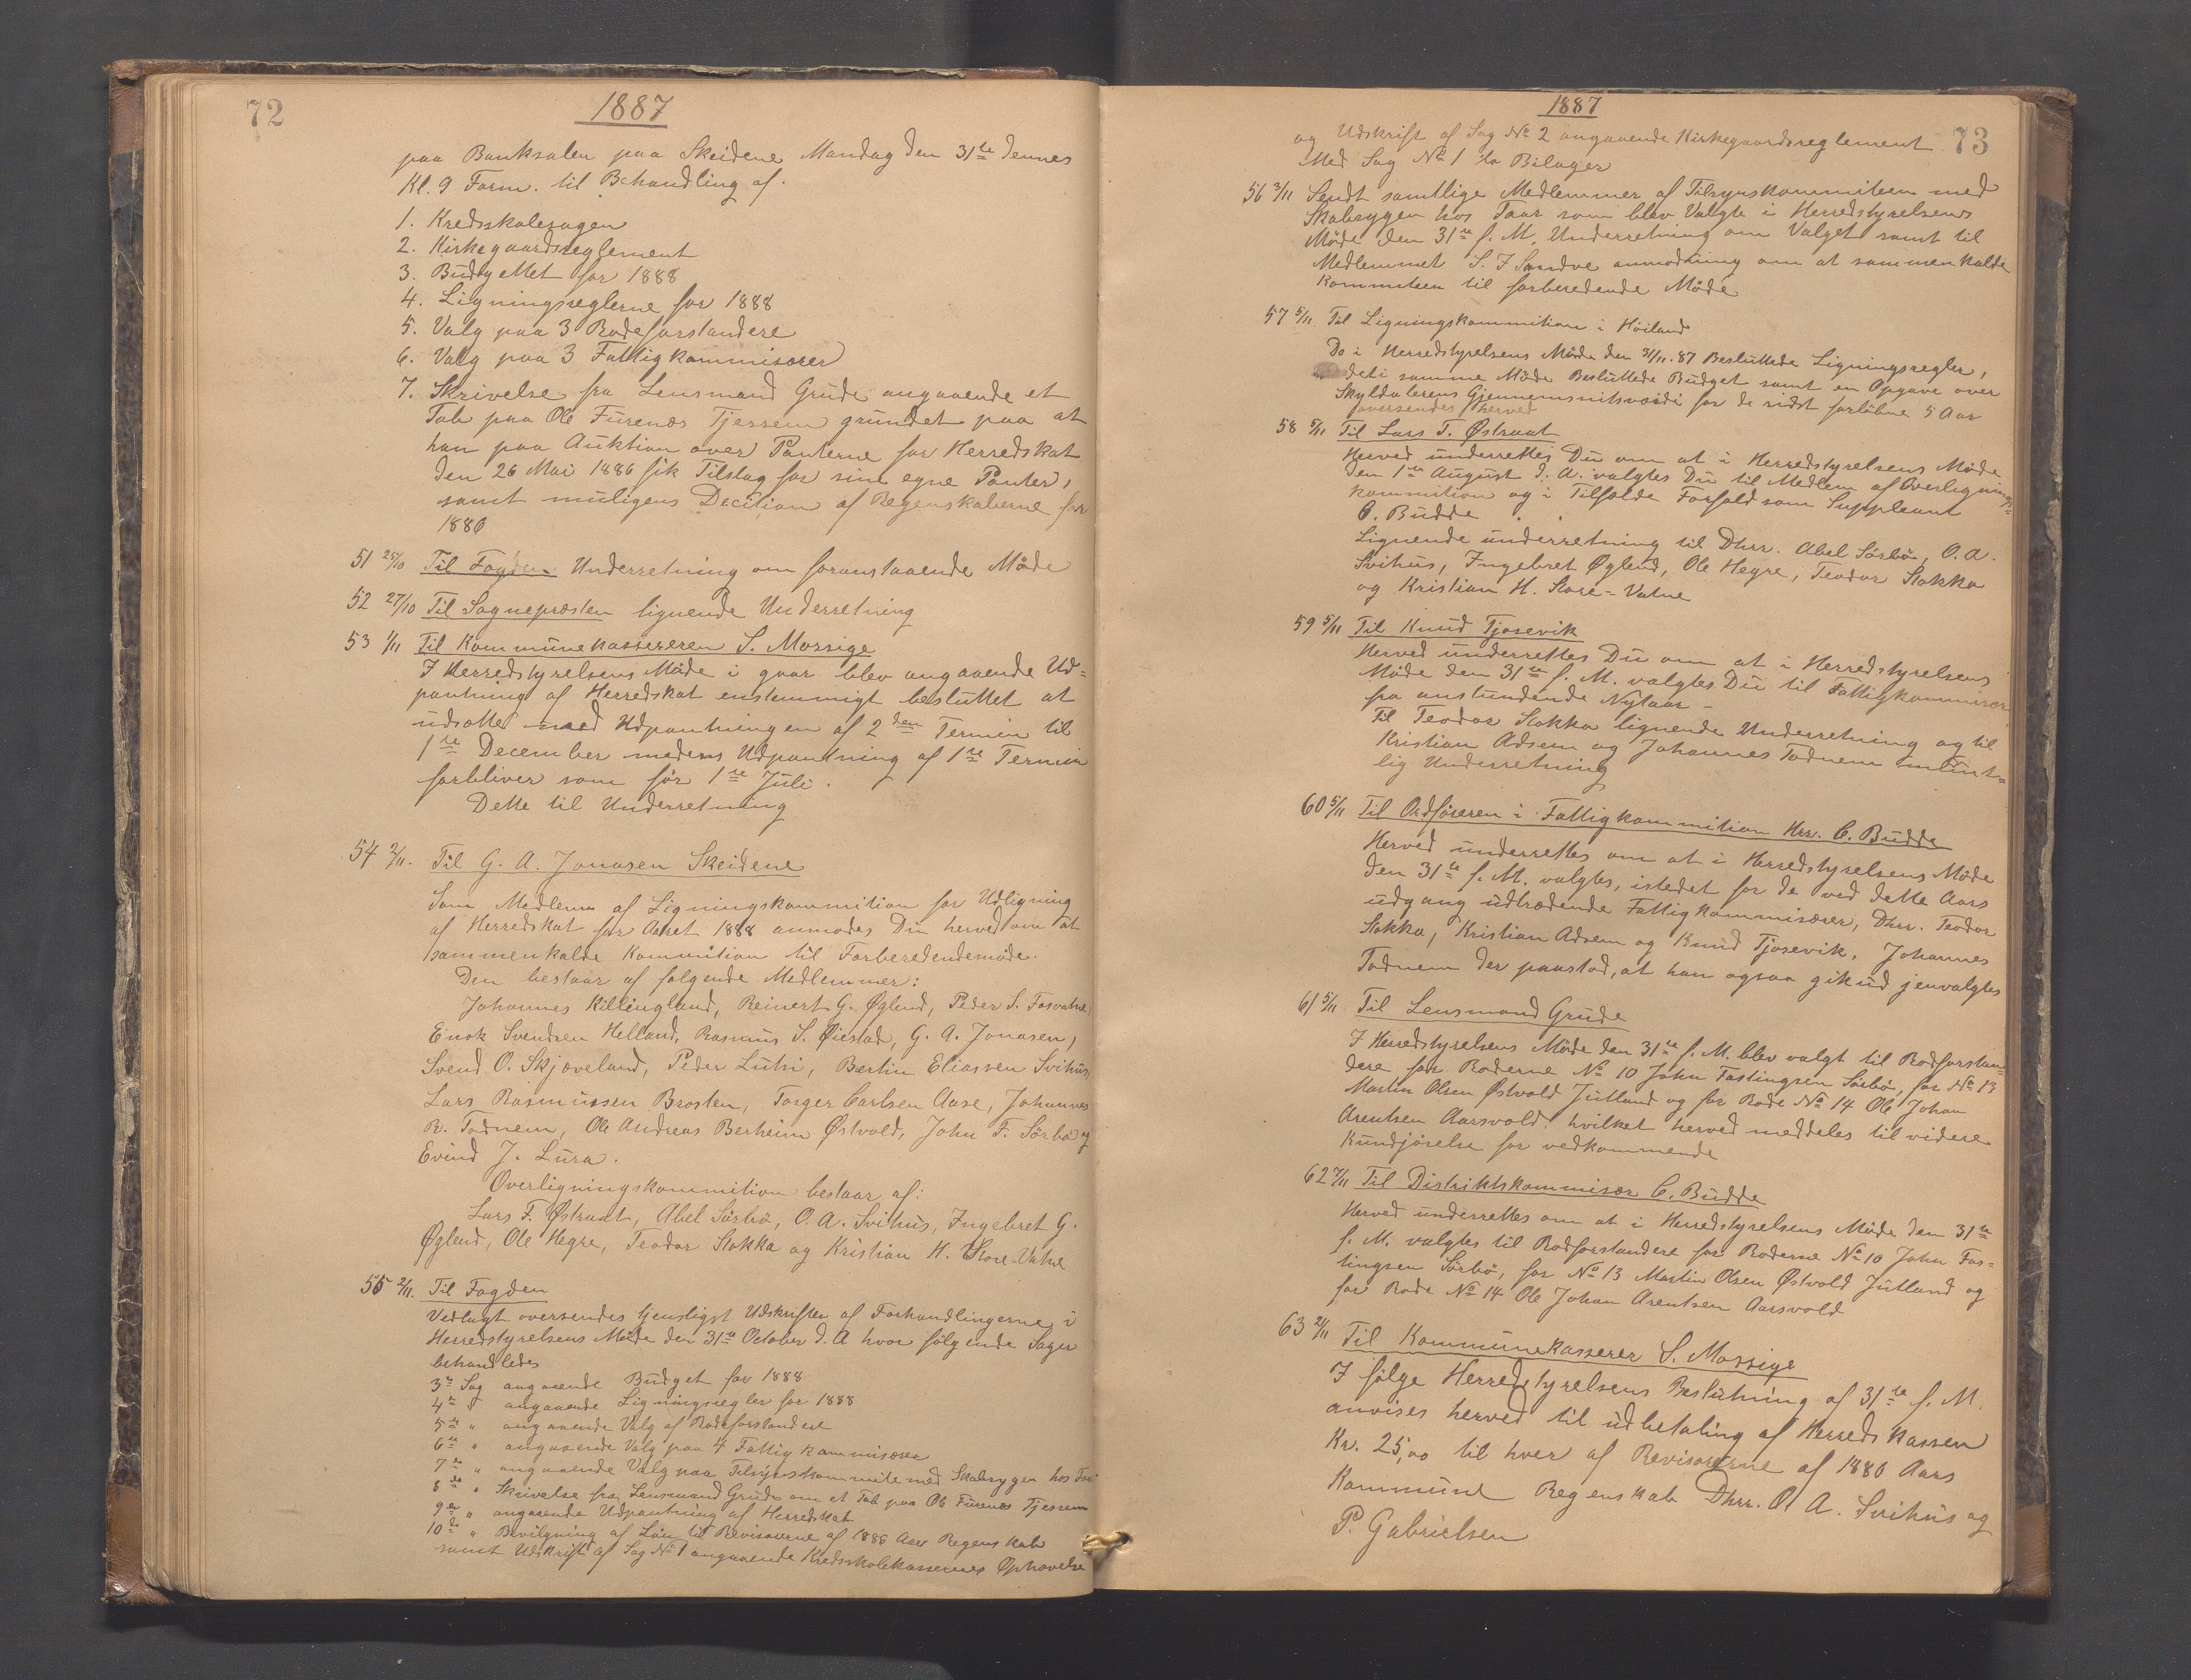 72
1887
paa Banksalen paa Skeidene Mandag den 31te dennes
Kl. 9 Form. til Behandling af.
1. Kredsskolesagen
2. Kirkegaardsreglement
3. Budgettet for 1888
4. Ligningsreglerne for 1888
5. Valg paa 3 Rodeforstandere
6. Valg paa 3 Fattigkommisærer
7. Skrivelse fra Lensmand Grude angaaende et
Tab paa Ole Furenæs Tjessem grundet paa at
han paa Auktion over Panterne for Herredskat
den 26 Mai 1886 fik Tilslag for sine egne Panter,
samt muligens Decition af Regenskaberne for
1886
51 25/10 Til Fogden Underretning om foranstaaende Möde
52 27/10 Til Sognepræsten lignende Underretning
53 1/11 Til Kommunekassereren S. Mossige
I Herredstyrelsens Möde i gaar blev angaaende Ud=
pantning af Herredskat enstemmigt besluttet at
udsætte med Udpantningen af 2den Termin til
1te December medens Udpantning af 1te Termin
forbliver som för 1te Juli.
Dette til Underretning
54 2/11. Til G. A. Jonasen Skeidene
Som Medlem af Ligningskommition for Udligning
af Herredskat for Aaret 1888 anmodes Du herved om at
sammenkalde Kommition til Forberedendemöde.
Den bestaar af følgende Medlemmer:
Johannes Killingland, Reinert G. Øglend, Peder S. Fosvatne,
Enok Svendsen Helland, Rasmus S. Øiestad, G. A. Jonasen,
Svend O. Skjæveland, Peder Lutsi, Bertin Eliassen Svihus,
Lars Rasmussen Brosten, Torger Carlsen Aase, Johannes
R. Todnem, Ole Andreas Berheim Østvold, John F. Sörbö og
Evind J. Lura.
Overligningskommition bestaar af:
Lars T. Østraat, Abel Sörbö, O. A. Svihus, Ingebret G.
Øglend, Ole Hegre, Teodor Stokka og Kristian H. Store-Vatne
55 2/11. Til Fogden
Vedlagt oversendes tjenstligst Udskrifter af Forhandlingerne i
Herredstyrelsens Möde den 31te October d. A hvor fölgende Sager
behandledes
3de Sag angaaende Budget for 1888
4de " angaaende Ligningsregler for 1888
5te " angaaende Valg af Rodeforstandere
6te " angaaende Valg paa 4 Fattigkommisærer
7de " angaaende Valg paa Tilsynskommite med Skabsygen hos Faar
8de " Skrivelse fra Lensmand Grude om et Tab paa Ole Furenæs Tjessem
9de " angaaende Udpantning af Herredskat
10de " Bevilgning af Lön til Revisorerne af 1886 Aars Regenskab
samt Udskrift af Sag No 1 angaaende Kredsskolekassernes Ophævelse
1887
73
og Udskrift af Sag No 2 angaaende Kirkegaardsreglement
Med Sag No 1 to Bilager
56 3/11 Sendt samtlige Medlemmer af Tilsynskommiteen med
Skabsygen hos Faar som blev Valgte i Herredstyrelsens
Möde den 31te f. M. Underretning om Valget samt til
Medlemmet S. J Sandve anmodning om at sammenkalde
Kommiteen til forberedende Möde
57 5/11. Til Ligningskommition i Höiland
Da i Herredstyrelsens Möde den 31/11.87 Besluttede Ligningsregler,
det i samme Möde Besluttede Budget samt en Opgave over
Skyldalerens Gjennemsnitsværdi for de sidst forløbne 5 Aar
oversendes herved
58 5/11 Til Lars T. Østraat
Herved underrettes Du om at i Herredstyrelsens Möde
den 1te August d. A. valgtes Du til Medlem af Overlignings=
kommition og i Tilfælde Forfald som Suppleant
C. Budde
Lignende underretning til Dhrr. Abel Sörbö, O. A.
Svihus, Ingebret Øglend, Ole Hegre, Teodor Stokka
og Kristian H. Store=Vatne
59 5/11 Til Knud Tjosevik
Herved underrettes Du om at i Herredstyrelsens
Möde den 31te f. M. valgtes Du til Fattigkommisær
fra anstundende Nytaar –
Til Teodor Stokka lignende Underretning og til
Kristian Adsem og Johannes Todnem munt=
lig Underretning
60 5/11 Til Ordföreren i Fattigkommition Hrr. C. Budde
Herved underrettes om at i Herredstyrelsens Möde
den 31te f. M. valgtes, istedet for de ved dette Aars
udgang udtrædende Fattigkommisærer, Dhrr. Teodor
Stokka, Kristian Adsem og Knud Tjosevik. Johannes
Todnem der paastod, at han ogsaa gik ud jenvalgtes
61 5/11. Til Lensmand Grude
I Herredstyrelsens Möde den 31te f. M. blev valgt til Rodforstan=
dere for Roderne No 10 John Fastingsen Sörbö, for No 13
Martin Olsen Østvold Jutland og for Rode No 14 Ole Johan
Arentsen Aarsvold. hvilket herved meddeles til videre
Kundjörelse for vedkommende
62 7/11 Til Distriktskommisær C. Budde
Herved underrettes om at i Herredstyrelsens Möde den 31te
f. M. valgtes til Rodforstandere for Roderne No 10 John Fas=
tingsen Sörbö, for No 13 Martin Olsen Østvold Jutland og
for Rode No 14 Ole Johan Arentsen Aarsvold
63 21/11 Til Kommunekasserer S. Mossige
I fölge Herredstyrelsens Beslutning af 31te f. M.
anvises herved til udbetaling af Herredskassen
Kr. 25,00 til hver af Revisorerne af 1886 Aars
Kommune Regenskab Dhrr. O A. Svihus og
P. Gabrielsen